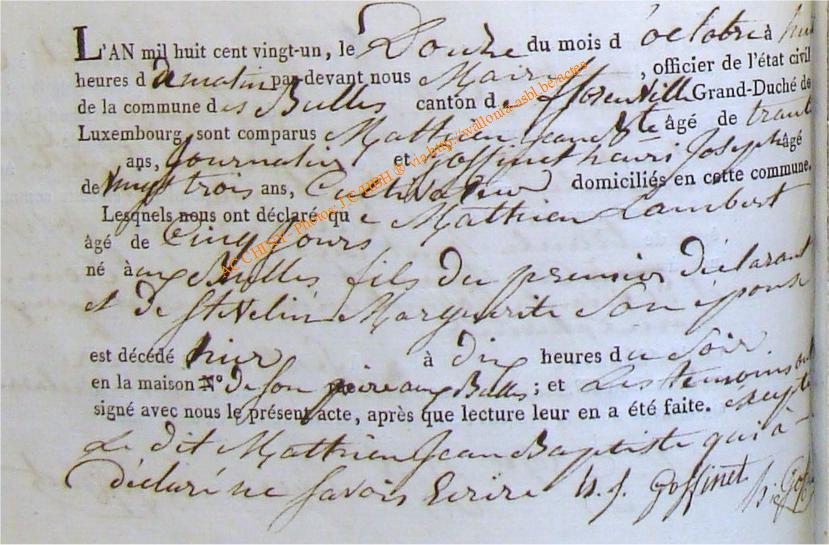 L'AN mil huit cent vingt-un, le Douze du mois d'octobre à huit
heures du matin par devant nous Maire, officier de l'état civil
de la commune des Bulles canton de florenville Grand-Duché de
Luxembourg, sont comparus Mathieu jean Bte âgé de trente
ans, journalier et Goffinet henri Joseph âgé
de vingt trois ans, Cultivateur domiciliés en cette commune.
Lesquels nous ont déclaré que Mathieu Lambert
âgé de Cinq jours
né à aux Bulles fils du premier déclarant
et de Marguerite Son épouse
est décédé hier à dix heures du Soir
en la maison N° de Son père aux Bulles; et Les temoins ont
signé avec nous le présent acte, après que lecture leur en a été faite. excepté
Le dit Mathieu Jean Baptiste qui à
déclaré ne Savoir Ecrire h. j. Goffinet
ACCHIST - Photos J C TISH @ via http://wallonia-asbl.be/actes